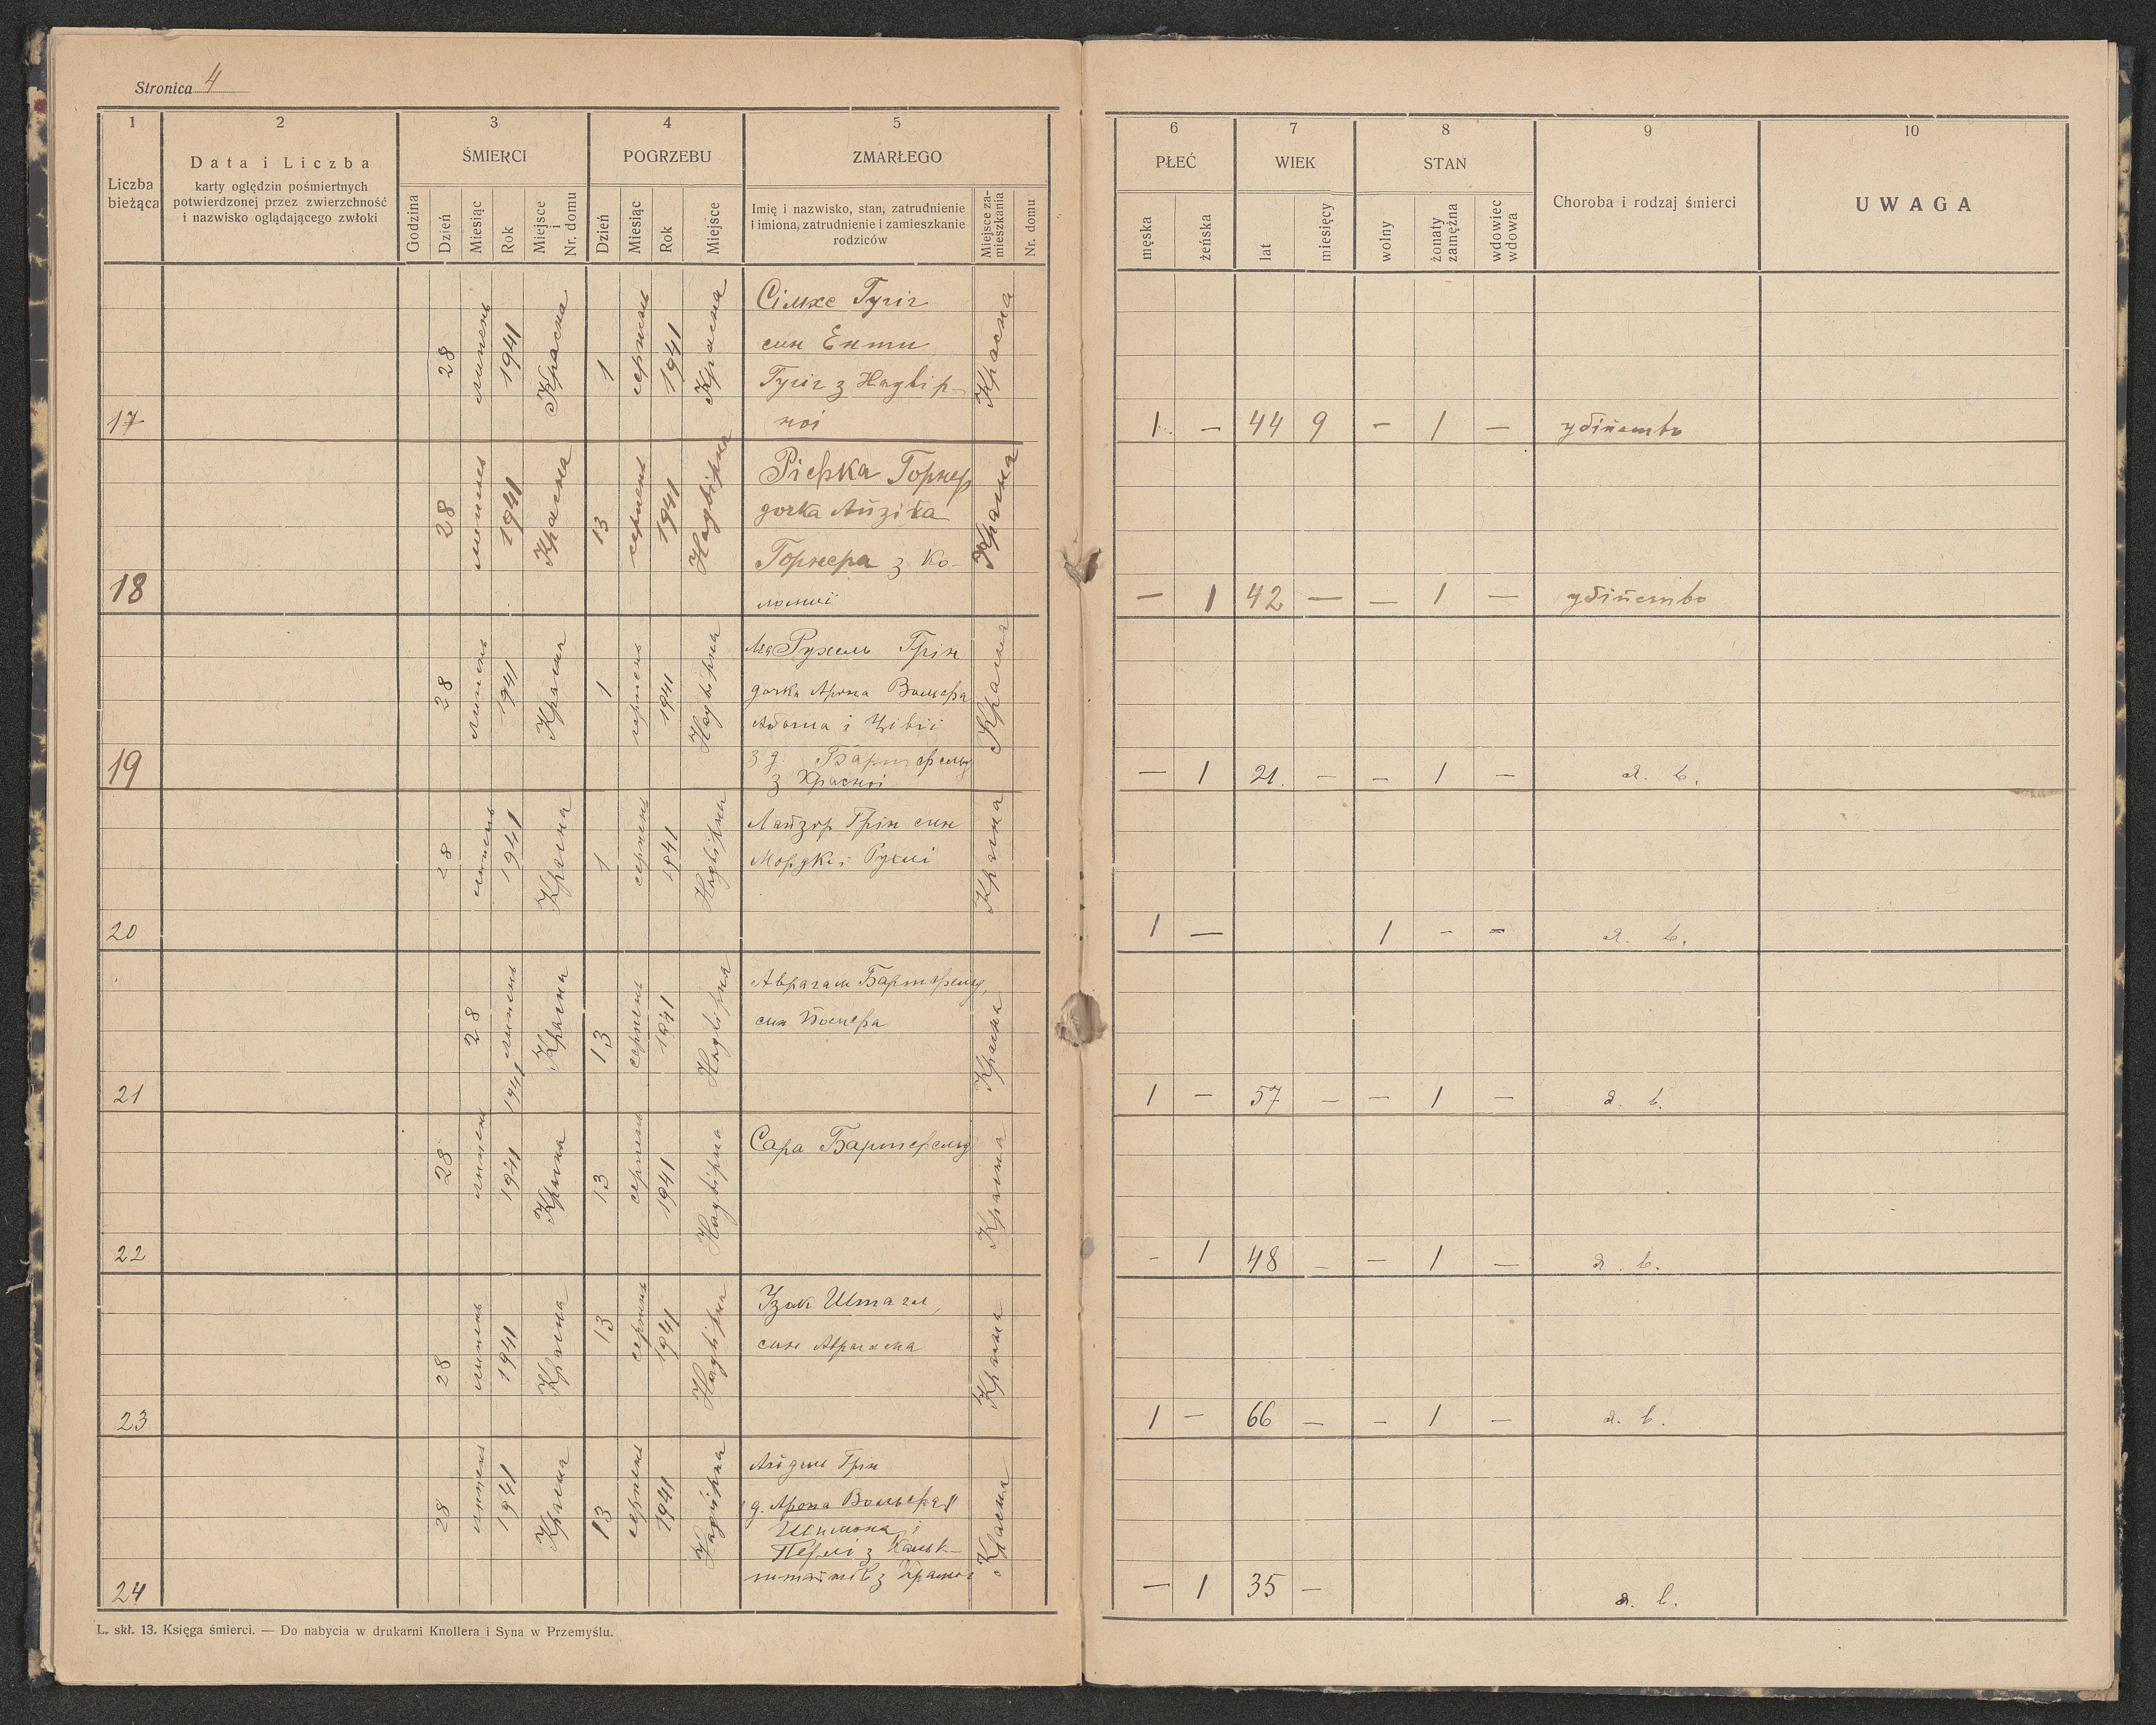 Stronica 4
1 2 3 4 5 6 7 8 9 10
Liczba bieżąca
Data i Liczba
karty oględzin pośmiertnych
potwierdzonej przez zwierzchność
i nazwisko oglądającego zwłoki
ŚMIERCI
Godzina
Dzień
Miesiąc
Rok
Miejsce i Nr. domu
POGRZEBU
Dzień
Miesiąc
Rok
Miejsce
ZMARŁEGO
Imię i nazwisko, stan, zatrudnienie
i imiona, zatrudnienie i zamieszkanie
rodziców
Miejsce za-
mieszkania
Nr. domu
PŁEĆ
męska
żeńska
WIEK
lat
miesięcy
STAN
wolny
żonaty
zamężna
wdowiec
wdowa
Choroba i rodzaj śmierci
UWAGA
17 28 липень 1941 Красна 1 серпень 1941 Красна
Сімхе
син
з Надвір-
ної
Красна
1 – 44 9 – 1 – убійство
18 28 липень 1941 Красна 13 серпень 1941 Надвірна
Рієрка Горнер
дочка
Горнера з Ко-
ломиї
Красна
– 1 42 – – 1 – убійство
19 28 липень 1941 Красна 1 серпень 1941 Надвірна
Рухель Грін
дочка Арона
і
з д.
з Красної
Красна
– 1 21 – – 1 – д. в.
20 28 липень 1941 Красна 1 серпень 1941 Надвірна
Лайзор Грін син
Рухлі
Красна
1 – 1 – – д. в.
21 28 липень 1941 Красна 13 серпень 1941 Надвірна
Аврагам Бартфельд,
син
Красна
1 – 57 – – 1 – д. в.
22 28 липень 1941 Красна 13 серпень 1941 Надвірна
Сара Бартфельд
Красна
– 1 48 – – 1 – д. в.
23 28 липень 1941 Красна 13 серпень 1941 Надвірна
Ізак
син Авраама
Красна
1 – 66 – – 1 – д. в.
24 28 липень 1941 Красна 13 серпень 1941 Надвірна
Грін
д. Арона
Шимона і
Перлі з
з Красної
Красна
– 1 35 – д. в.
L. skł. 13. Księga śmierci. — Do nabycia w drukarni Knollera i Syna w Przemyślu.